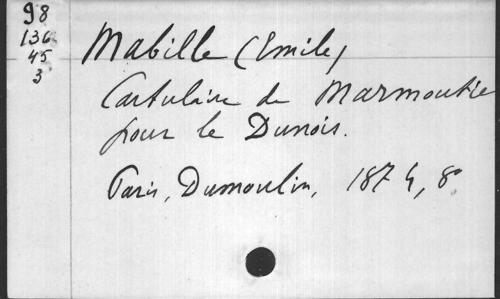 98
136
45
3
Mabille (Emile)
Cartulaire de Marmoutie
pour le Dunois.
Paris, Dumoulin, 1874, 8°